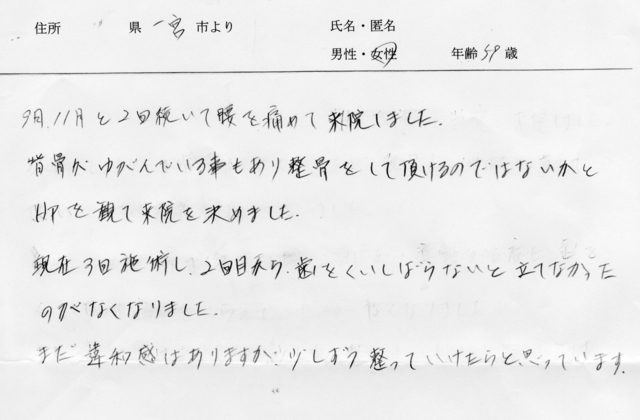 住所 県 一宮 市より 氏名・匿名
男性・女性 年齢 59 歳
9月、11月と2回続いて腰を痛めて来院しました。
背骨がゆがんでいる事もあり整骨をして頂けるのではないかと
HPを観て来院を決めました。
現在3回施術し、2回目から、歯をくいしばらないと立てなかった
のがなくなりました。
まだ違和感はありますが、少しずつ整っていけたらと思っています。